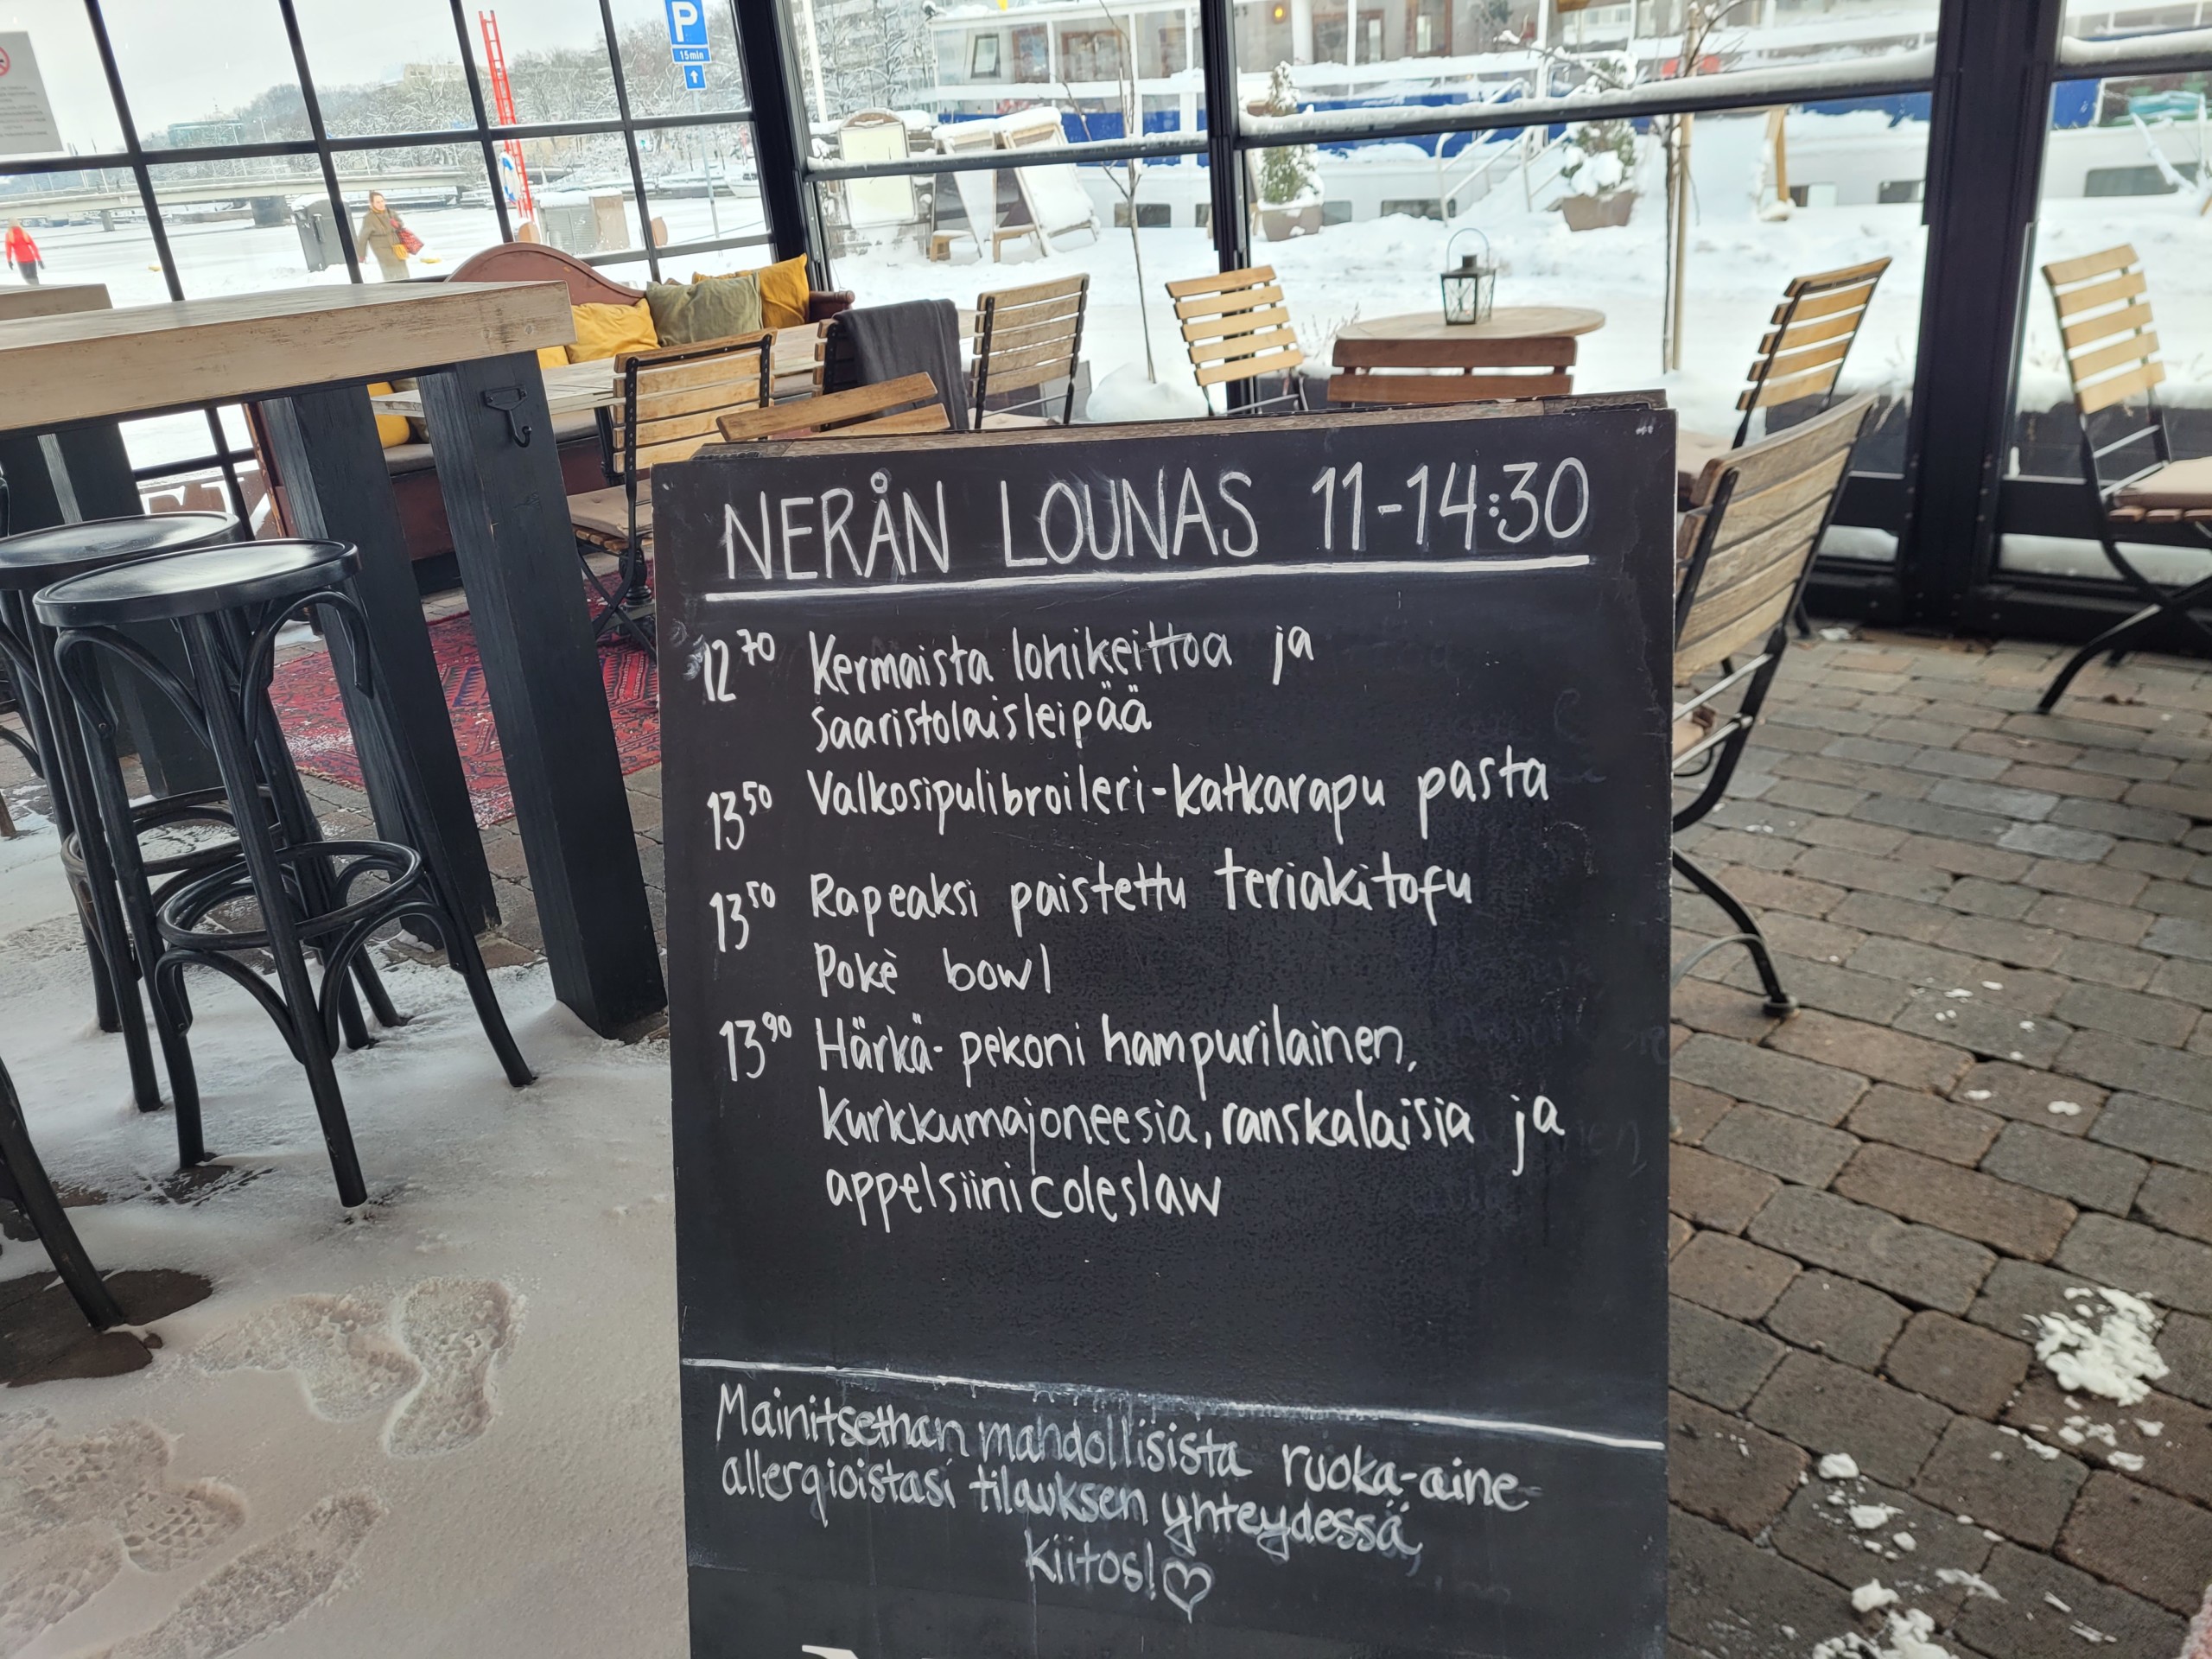 P
15 min
NERÅN LOUNAS 11-14:30
12 70 Kermaista lohikeittoa ja
Saaristolaisleipää
13 50 Valkosipulibroileri-katkarapu pasta
13 50 Rapeaksi paistettu teriakitofu
Pokè bowl
13 90 Härkä- pekoni hampurilainen,
kurkkumajoneesia, ranskalaisia ja
appelsiinicoleslaw
Mainitsethan mahdollisista ruoka-aine-
allergioistasi tilauksen yhteydessä,
kiitos!♡